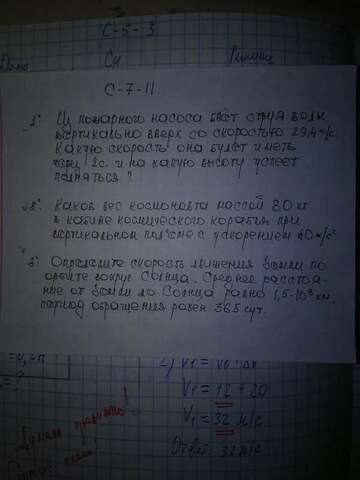 С-5-3
Дано Си Решение
С-7-11
1° Из пожарного насоса бьёт струя воды
вертикально вверх со скоростью 29,4 м/с.
Какую скорость она будет иметь
через 2с. и на какую высоту успеет
подняться?
2° Каков вес космонавта массой 80 кг
в кабине космического корабля при
вертикальном подъёме с ускорением 40 м/с²
3° Определите скорость движения Земли по
орбите вокруг Солнца. Среднее расстоя-
ние от Земли до Солнца равно 1,5·10⁸ км,
период обращения равен 365 сут.
V₁ = 12 + 20
V₁ = 32 м/с
Ответ: 32 м/с